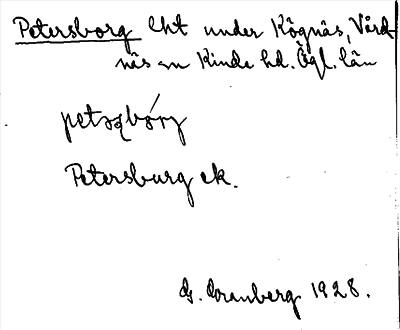 Petersborg lht under Kögnäs, Vård-
näs sn Kinda hd. Ögl. län
petəʂbórj
Petersburg ek.
G. Cranberg 1928.